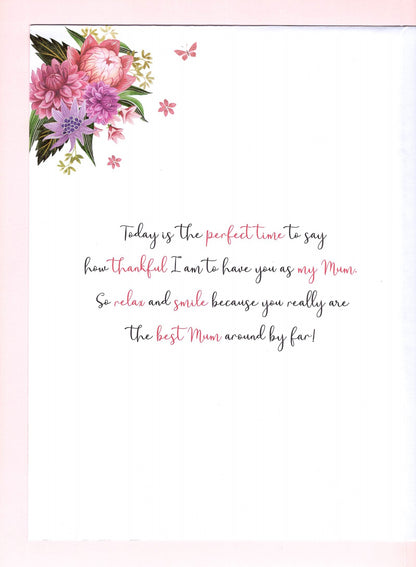 Today is the perfect time to say
how thankful I am to have you as my Mum.
So relax and smile because you really are
the best Mum around by far!